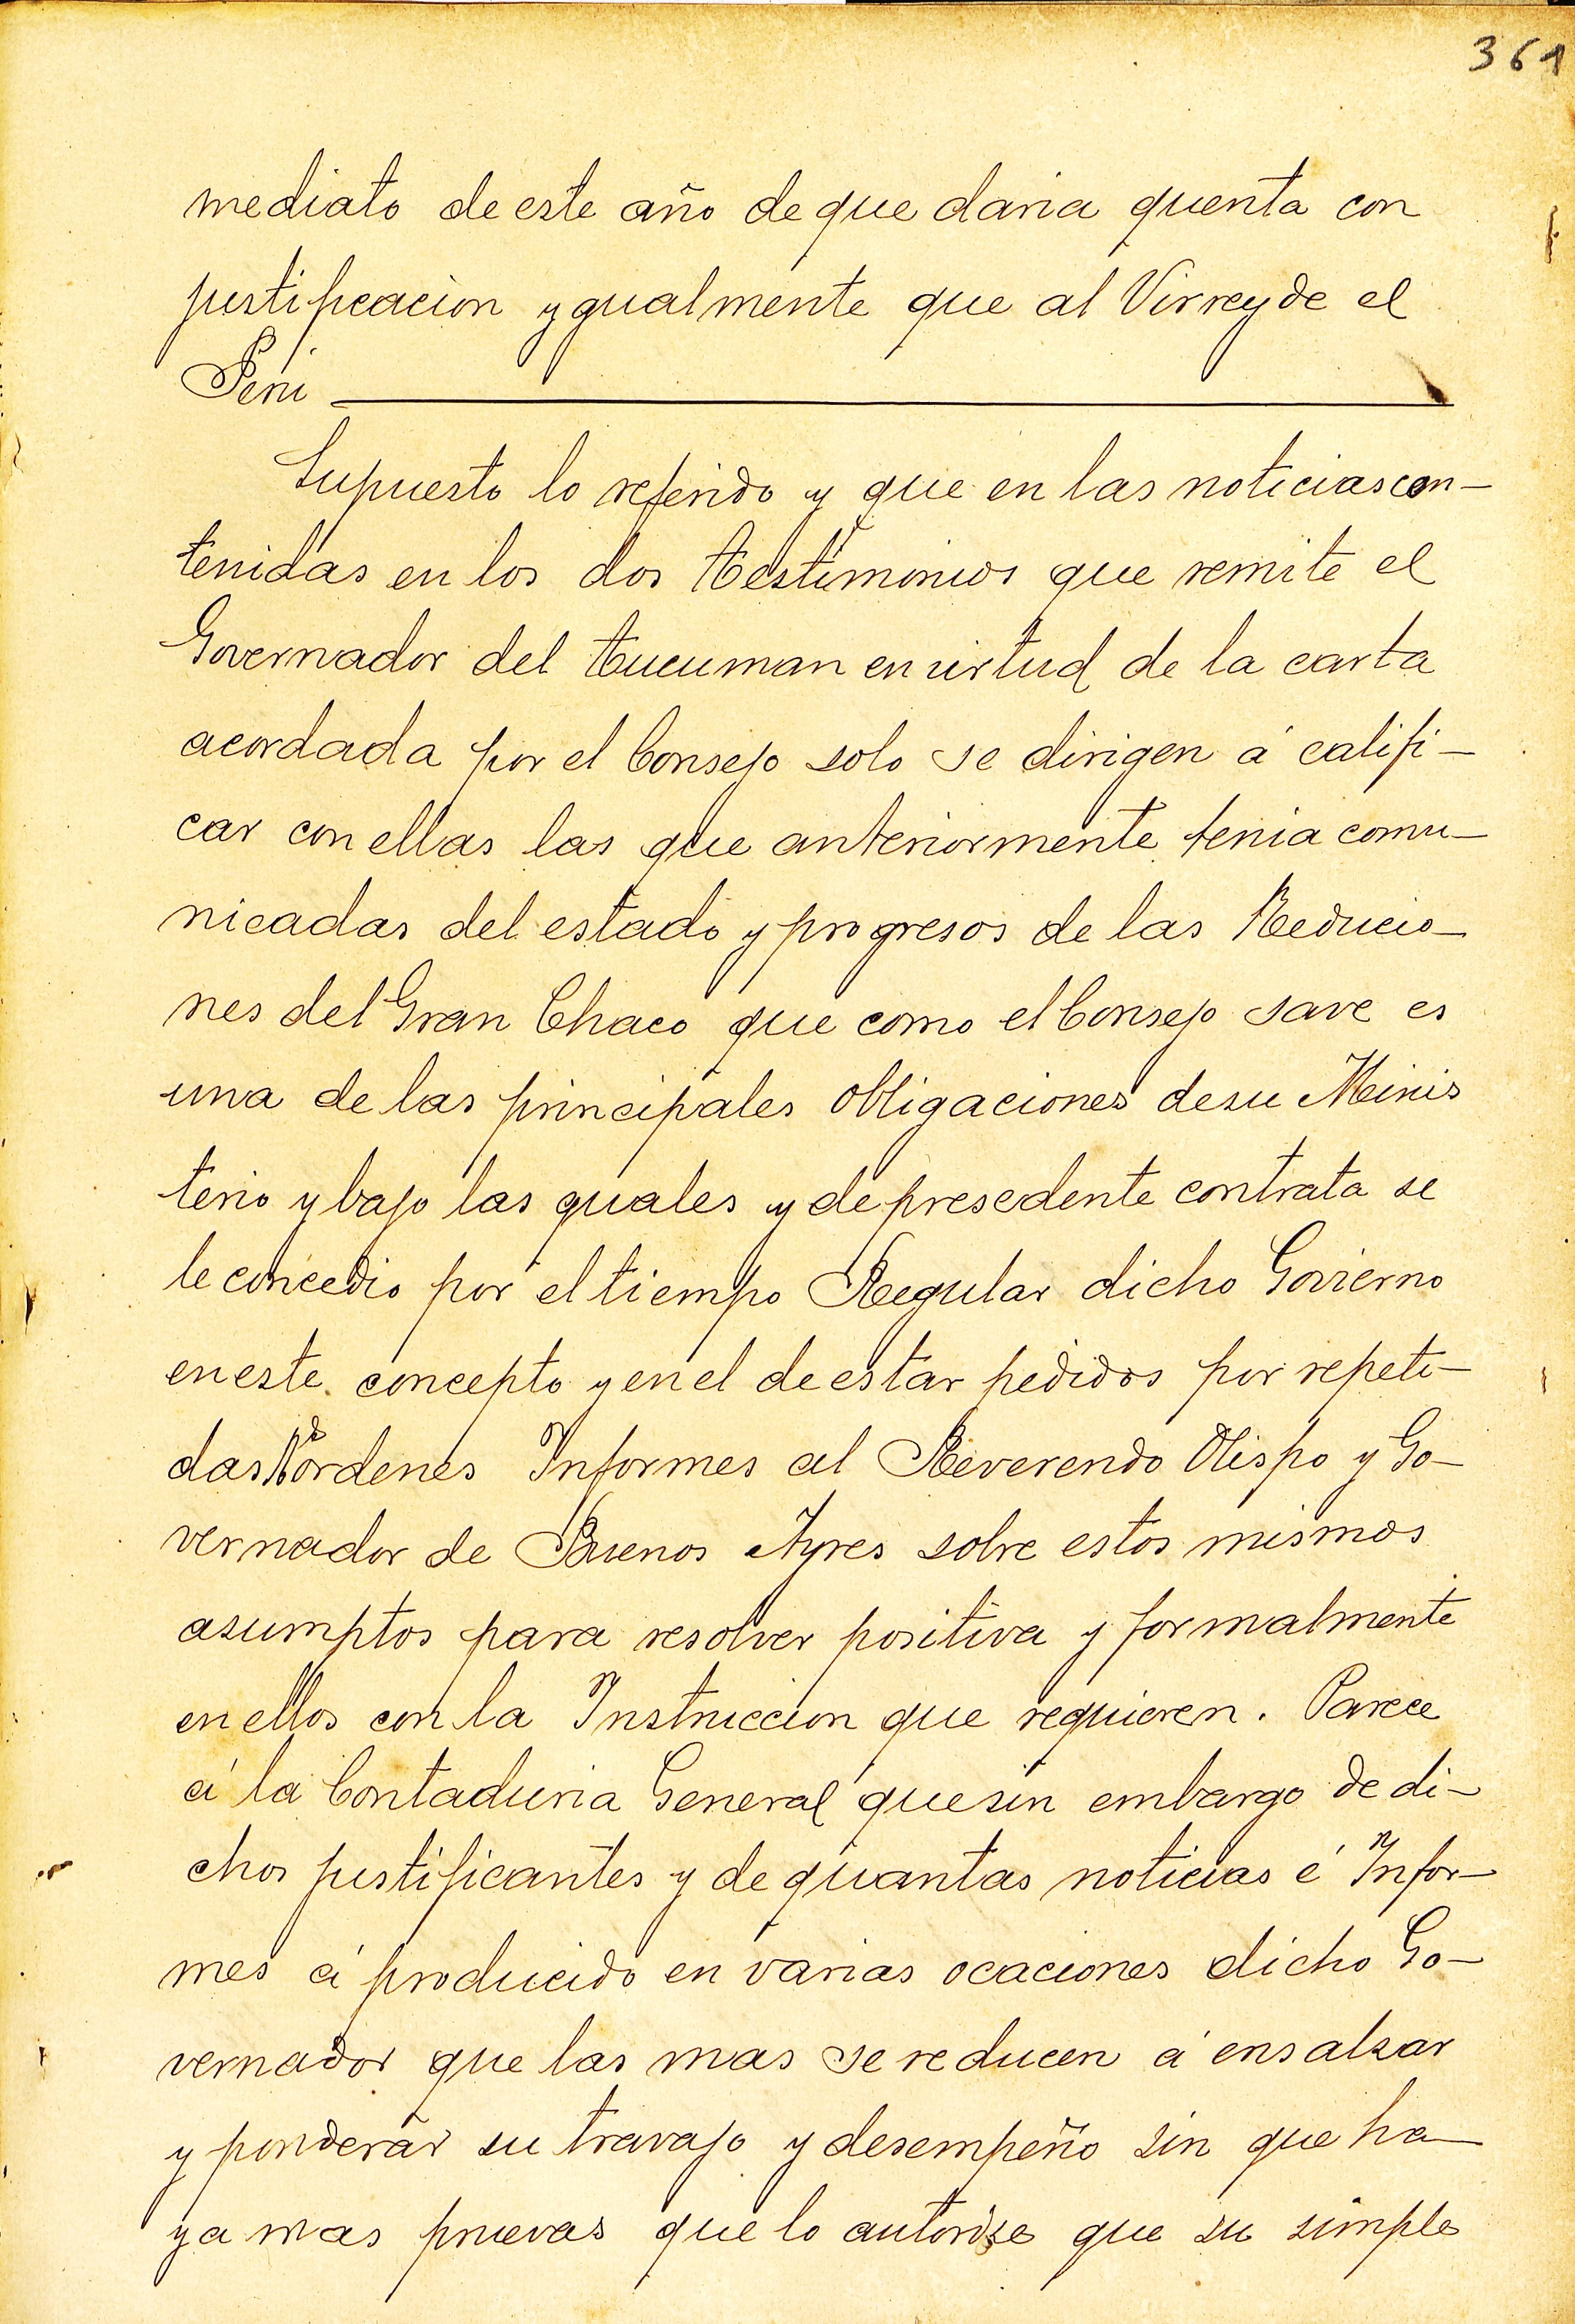 361
mediato de este año de que daria quenta con
justificacion ygualmente que al Virrey de el
Perú
Supuesto lo referido y que en las noticias con-
tenidas en los dos testimonios que remite el
Governador del tucuman en virtud de la carta
acordada por el Consejo solo se dirigen á califi-
car con ellas las que anteriormente tenia comu-
nicadas del estado y progresos de las Reducio-
nes del Gran Chaco que como el Consejo save es
una de las principales obligaciones de su Minis
terio y bajo las quales y de presedente contrata se
le concedio por el tiempo Regular dicho Govierno
en este concepto y en el de estar pedidos por repeti-
das Rs ordenes Informes al Reverendo Obispo y Go-
vernador de Buenos Ayres sobre estos mismos
asumptos para resolver positiva y formalmente
en ellos con la Instruccion que requieren. Parece
á la Contaduria General que sin embargo de di-
chos justificantes y de quantas noticias é Infor-
mes á producido en varias ocaciones dicho Go-
vernador que las mas se reducen á ensalsar
y ponderar su travajo y desempeño sin que ha-
ya mas pruevas que lo autorise que su simple